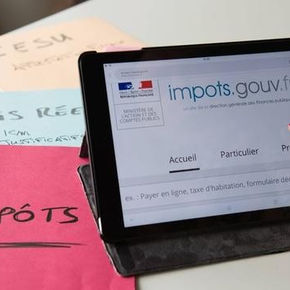 EESU
S RÉE
JUSTIFICATIF
PÓTS
MINISTÈRE
DE L'ACTION
ET DES
COMPTES PUBLICS
impots.gouv.f
un site de la direction générale des finances publiques
Accueil
Particulier
Pro
ex. : Payer en ligne, taxe d'habitation, formulaire déc